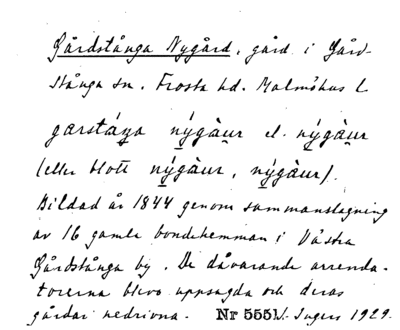 Gårdstånga Nygård, gård i Gård-
stånga sn. Frosta hd. Malmöhus l.
garstáṉa nýgàur el. nýgàur
(eller blott nýgàur, nýgàur).
Bildad år 1844 genom sammanslagning
av 16 gamla bondehemman i Västra
Gårdstånga by. De dåvarande arrenda-
torerna blevo uppsagda och deras
gårdar nedrivna. Nr 5551. Ingers 1929.